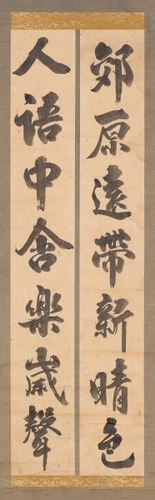 郊原遠帶新晴色
人語中含樂歲聲